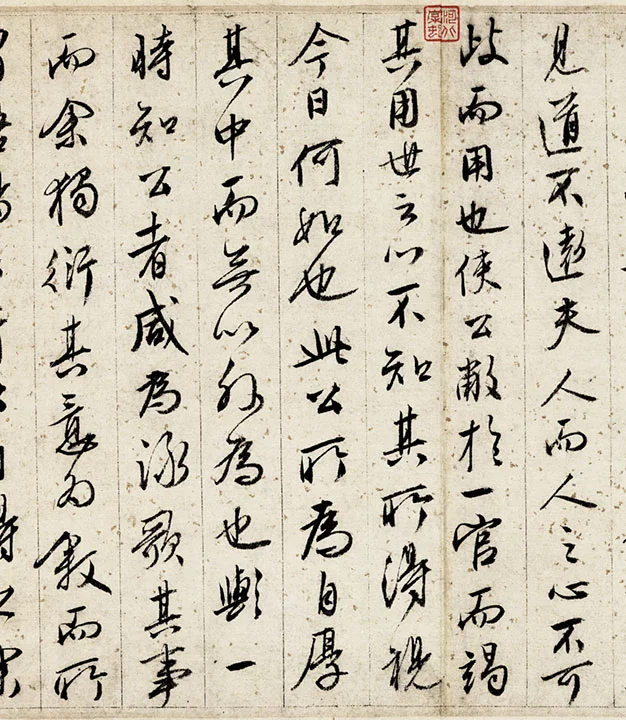 見道不遠夫人而人之心不可
歧而用也使公敝於一官而竭
其用世之心不知其所得視
今日何如也此公所為自厚
其中而無以外為也歟一
時知公者咸為詠歌其事
而余獨衍其意為敘而所